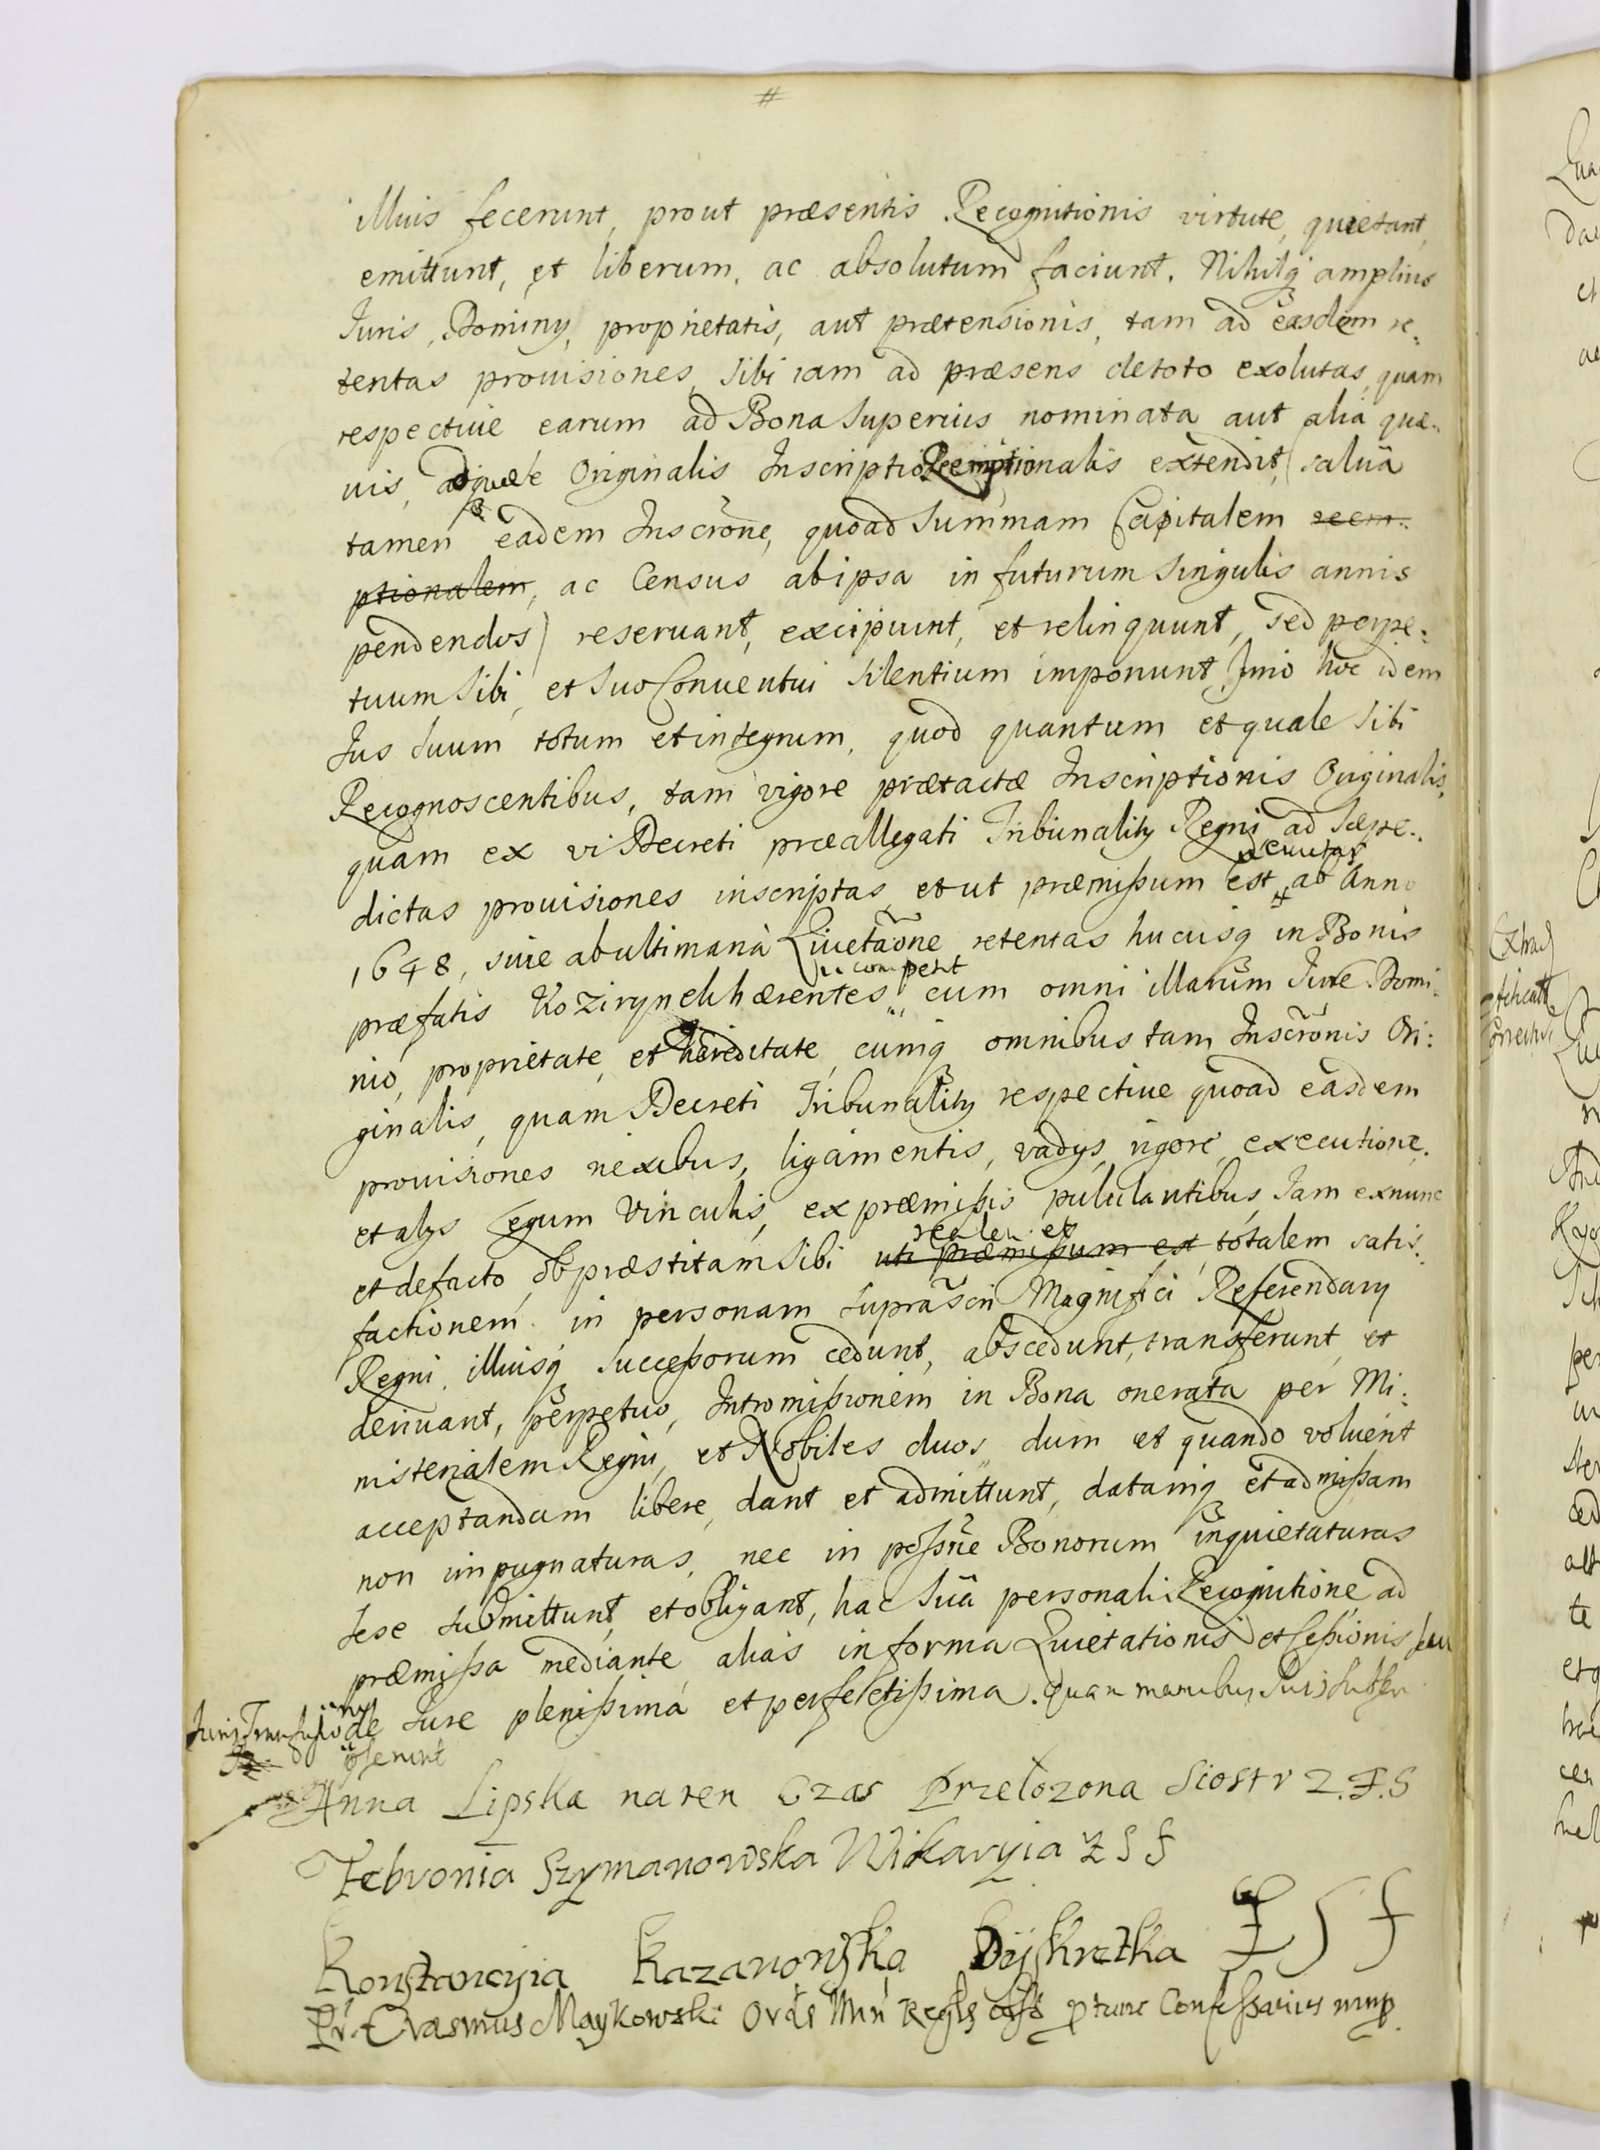 #
illius fecerunt, prout præsentis Recognitionis virtute, quietant,
emittunt, et liberum, ac absolutum faciunt. Nihilq amplius
Iuris, Dominy, proprietatis, aut prætensionis, tam ad easdem re:
tentas prouisiones, sibi iam ad præsens detoto exolutas, quam
respectiue earum ad Bona superius nominata aut alia quæ:
uis, ad quæ se Originalis Inscriptio Reemptionalis extendit, (salua
tamen eadem Inscrone, quoad Summam Capitalem reem:
ptionalem, ac Census abipsa in futurum singulis annis
pendendos) reseruant, excipiunt, et relinquunt, sed perpe:
tuum sibi, et suo Conuentui silentium imponunt. Imo hoc idem
Ius suum totum et integrum, quod quantum et quale sibi
Recognoscentibus, tam vigore prætactæ Inscriptionis Originalis,
quam ex vi Decreti præallegati Tribunality Regni ad sæpe:
dictas prouisiones inscriptas, et ut præmissum est, ab Anno
1648, siue ab ultimaria Quietaone retentas hucusq in Bonis
competit
præfatis Kozirynek hærentes, cum omni illarum Iure Domi:
nio, proprietate, et hæreditate, cumq omnibus tam Inscronis Ori:
ginalis, quam Decreti Tribunality respectiue quoad easdem
prouisiones nexibus, ligamentis, vadys, rigore, executione,
et alys legum Vinculis, ex præmissis pululantibus, Iam exnunc
realem et
et defacto, ob præstitam sibi uti præmissum est, totalem satis:
factionem in personam suprascri Magnifici Referendary
Regni, illiusq successorum cedunt, abscedunt, transferunt, et
deriuant, perpetuo, Intromissionem in Bona onerata per Mi:
nisterialem Regni, et Nobiles duos, dum et quando voluerit
acceptandam libere, dant et admittunt, datamq et admissam
non impugnaturas, nec in possne Bonorum inquietaturas
sese submittunt, et obligant, hac sua personali Recognitione ad
præmissa mediante, alias in forma Quietationis, et Cessionis seu
Iuris Transfusionis de Iure plenissima et perfectissima. Quam manibus suis subscri
pserunt
Anna Lipska na ten Czas Przełozona Siostr Z. F. S
Febronia Szymanowska Wikaryia Z S F
Konstancyia Kazanowska Dyskretka Z S F
Fr. Erasmus Maykowski Ord S Min Reglis ptunc Confessarius mnp